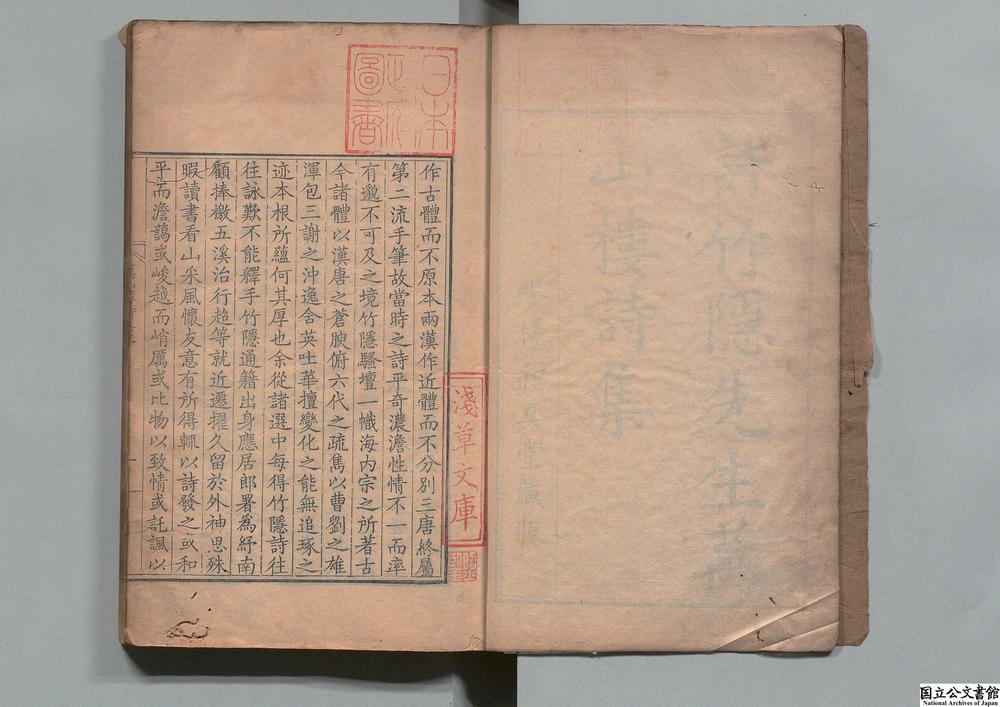 許竹隱先生萬
山樓詩集
日本
政府
圖書
作古體而不原本兩漢作近體而不分別三唐終屬
第二流手筆故當時之詩平奇濃澹性情不一而率
有邈不可及之境竹隱騷壇一幟海内宗之所著古
今諸體以漢唐之蒼腴俯六代之疏雋以曹劉之雄
渾包三謝之沖逸含英吐華擅變化之能無追琢之
迹本根所蘊何其厚也余從諸選中每得竹隱詩往
往詠歎不能釋手竹隱通籍出身應居郎署為紆南
顧捧檄五溪治行超等就近遷擢久留於外神思殊
暇讀書看山采風懷友意有所得輒以詩發之或和
平而澹蕩或峻越而峭厲或比物以致情或託諷以
淺草文庫
国立公文書館
National Archives of Japan